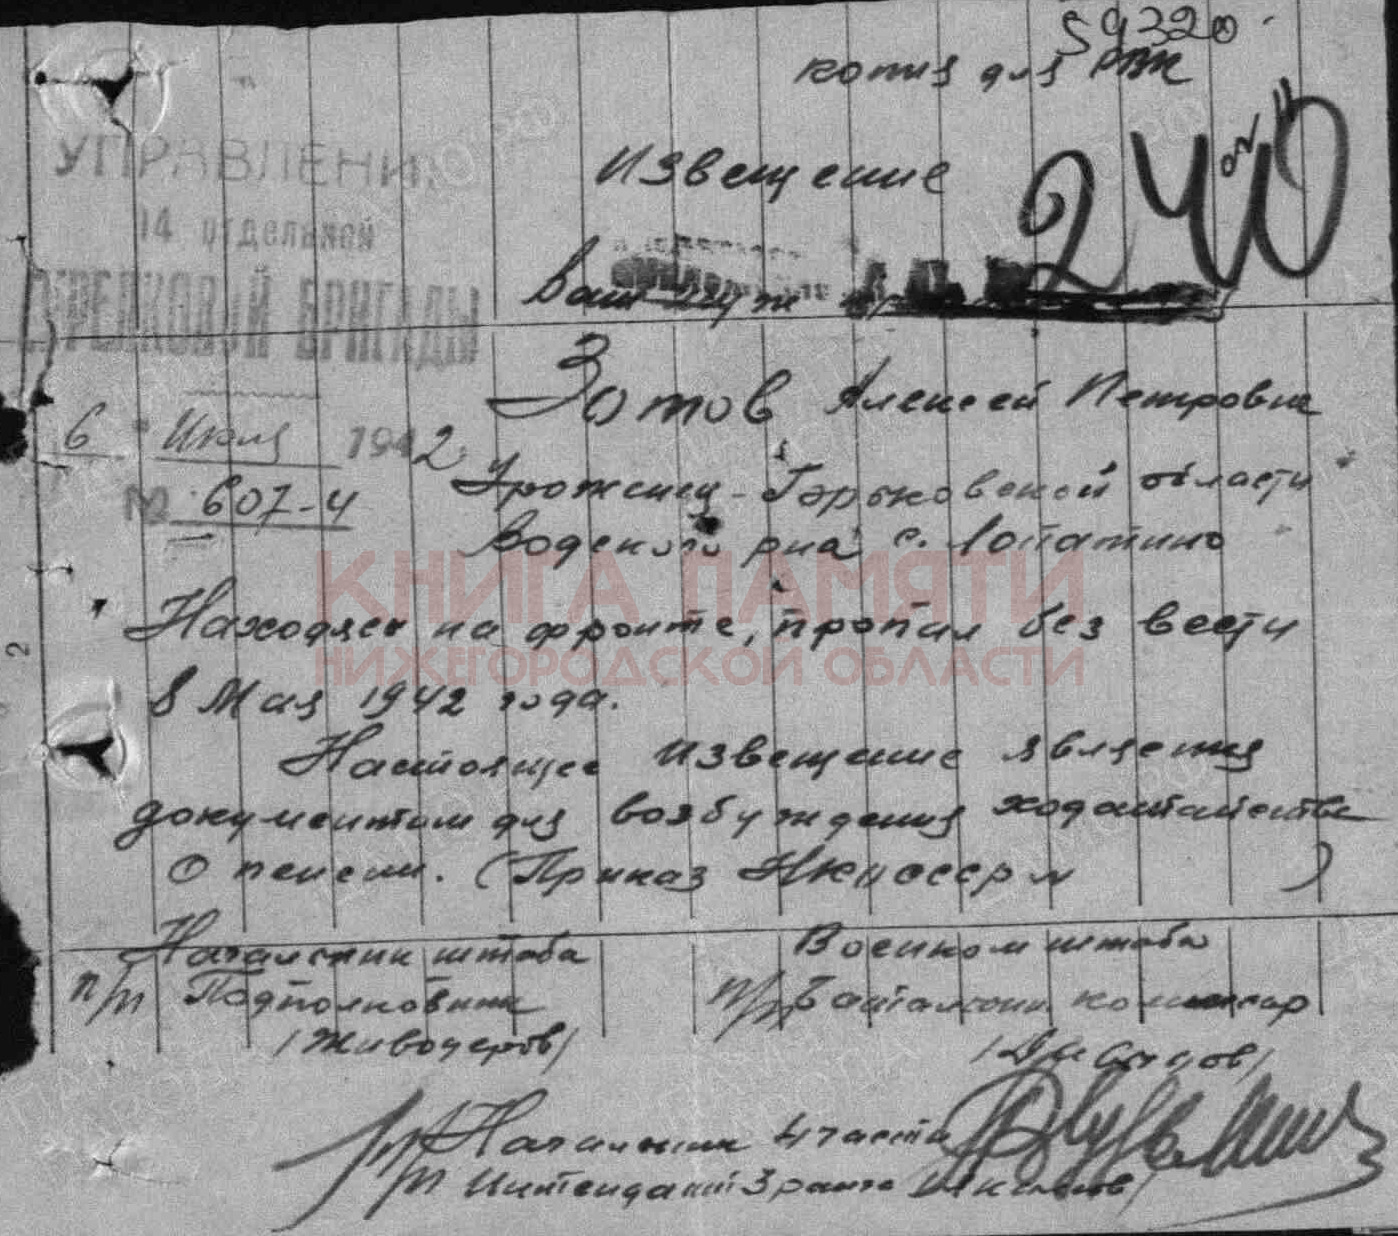 59320
копия для РВК
УПРАВЛЕНИЕ
14 отдельной
СТРЕЛКОВОЙ БРИГАДЫ
6 Июля 1942
№ 607-4
Извещение
240
Ваш муж
Зотов Алексей Петрович
Уроженец - Горьковской области
Водского р-на с. Лопатино
КНИГА ПАМЯТИ
НИЖЕГОРОДСКОЙ ОБЛАСТИ
Находясь на фронте, пропал без вести
8 Мая 1942 года.
Настоящее извещение является
документом для возбуждения ходатайства
о пенсии. (Приказ НКО СССР № )
Начальник штаба
п/п Подполковник
/Живодеров/
Военком штаба
п/п Батальон. комиссар
Начальник 4 части
п/п Интендант 3 ранга
2